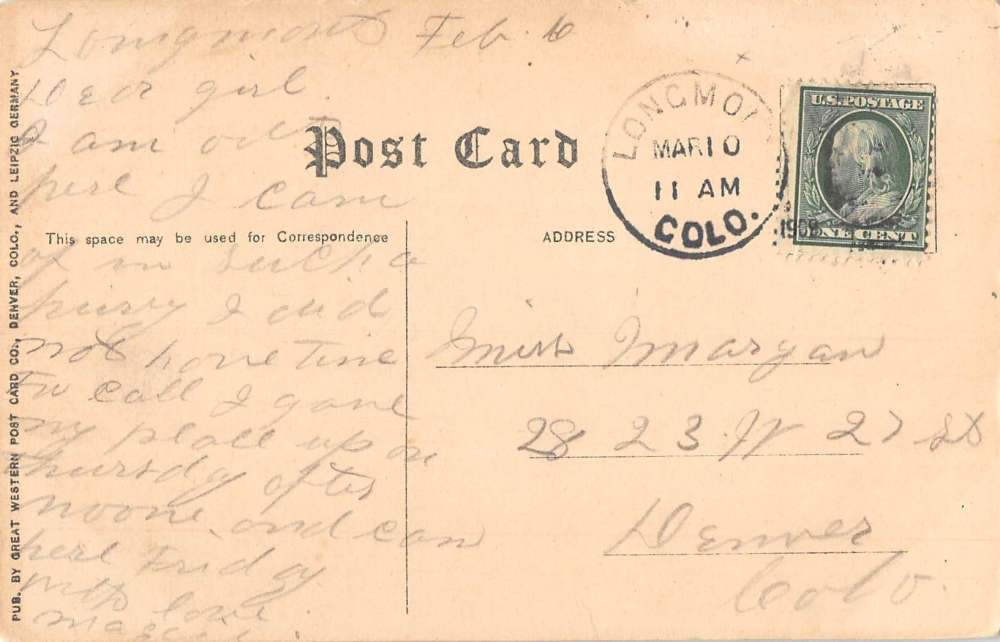 Longmont Feb. 6
Dear girl.
I am out
herl I cam
Post Card
This space may be used for Correspondence
of in sutch a
hurry I did
not hove time
to call I gave
my place up on
thursdy ofter
noone and com
herl Friday
with love
ADDRESS
LONGMO
MAR 10
11 AM
COLO.
1908
U.S. POSTAGE
ONE CENT
Miss Morgan
2823 W 27 St
Denver
Colo.
PUB. BY GREAT WESTERN POST CARD CO., DENVER, COLO., AND LEIPZIG GERMANY